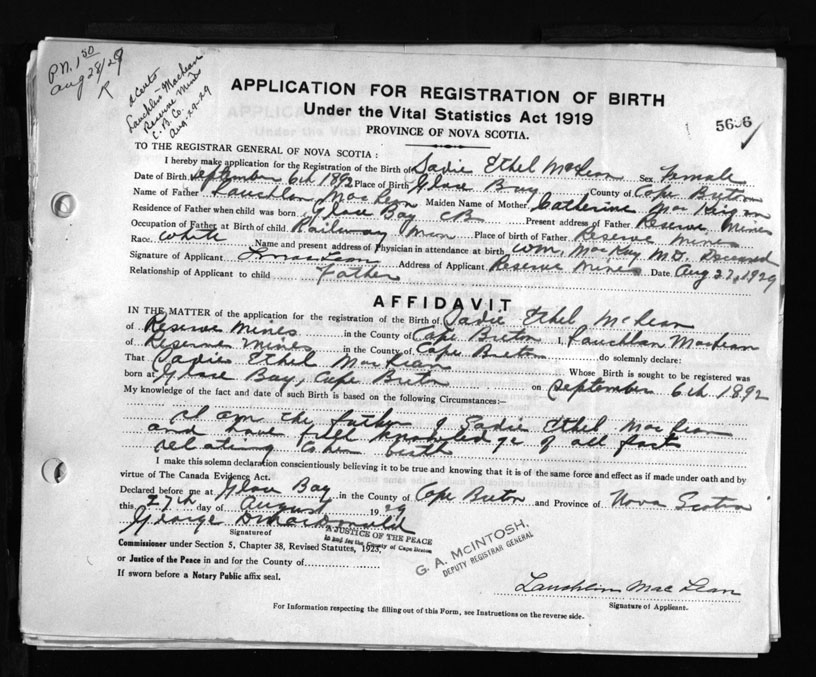 P.N. 1.50
Aug 28/29
R
Lauchlin MacLean
Reserve Mines
C.B. Co.
Aug-29-29
APPLICATION FOR REGISTRATION OF BIRTH
Under the Vital Statistics Act 1919
PROVINCE OF NOVA SCOTIA.
TO THE REGISTRAR GENERAL OF NOVA SCOTIA:
I hereby make application for the Registration of the Birth of Sadie Ethel McLean Sex Female
Date of Birth September 6th 1892 Place of Birth Glace Bay County of Cape Breton
Name of Father Lauchlan MacLean Maiden Name of Mother Catherine MacKinnon
Residence of Father when child was born Glace Bay CB Present address of Father Reserve Mines
Occupation of Father at Birth of child Railway Man Place of birth of Father Reserve Mines
Race White Name and present address of Physician in attendance at birth Wm. MacKay M.D. Deceased
Signature of Applicant L MacLean Address of Applicant Reserve Mines Date Aug 27, 1929
Relationship of Applicant to child Father
AFFIDAVIT
IN THE MATTER of the application for the registration of the Birth of Sadie Ethel McLean
of Reserve Mines in the County of Cape Breton I, Lauchlan MacLean
of Reserve Mines in the County of Cape Breton do solemnly declare:
That Sadie Ethel MacLean Whose Birth is sought to be registered was
born at Glace Bay, Cape Breton on September 6th 1892
My knowledge of the fact and date of such Birth is based on the following Circumstances:—
I am the father of Sadie Ethel MacLean
and have full knowledge of all fact
relating to her birth
I make this solemn declaration conscientiously believing it to be true and knowing that it is of the same force and effect as if made under oath and by
virtue of The Canada Evidence Act.
Declared before me at Glace Bay in the County of Cape Breton and Province of Nova Scotia
this 27th day of August 1929
George D MacDonald
Signature of
A JUSTICE OF THE PEACE
in and for the County of Cape Breton
Commissioner under Section 5, Chapter 38, Revised Statutes, 1923.
or Justice of the Peace in and for the County of
If sworn before a Notary Public affix seal.
G. A. McINTOSH.
DEPUTY REGISTRAR GENERAL
Lauchlin MacLean
Signature of Applicant.
For Information respecting the filling out of this Form, see Instructions on the reverse side.